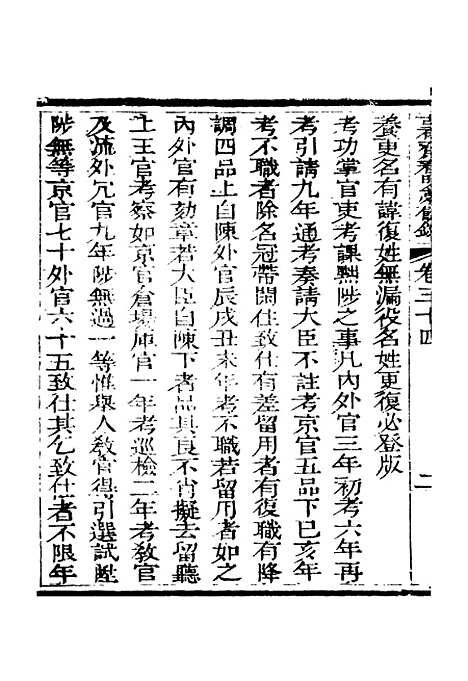 卷三十四
二
養吏名有諱復姓無漏役名姓更復必登版
考功掌官吏考課黜陟之事凡內外官三年初考六年再
考引請九年通考奏請大臣不註考京官五品下巳亥年
考不職者除名冠帶閑住致仕有差留用者有復職有降
調四品上自陳外官辰戌丑未年考不職若留用者如之
內外官有劾章若大臣自陳下者品其良不肖擬去留聽
上王官考察如京官倉場庫官一年考巡檢二年考教官
及流外冗官九年陟無過一等惟舉人教官得引選試陞
陟無等京官七十外官六十五致仕其乞致仕者不限年